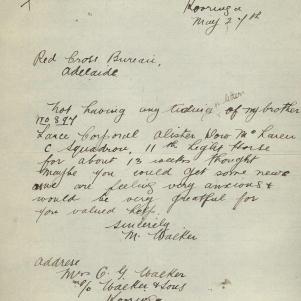 Kooringa
May 27th
Red Cross Bureau,
Adelaide
Not having any tidings or letter of my brother
No 897
Lance Corporal Alister Dow McLaren
C Squadron, 11th Light Horse
for about 13 weeks thought
maybe you could get some news
we are feeling very anxious &
would be very greatful for
you valued help
Sincerely
M. Walker
Address
Mrs C. G. Walker
c/o Walker & Sons
Kooringa